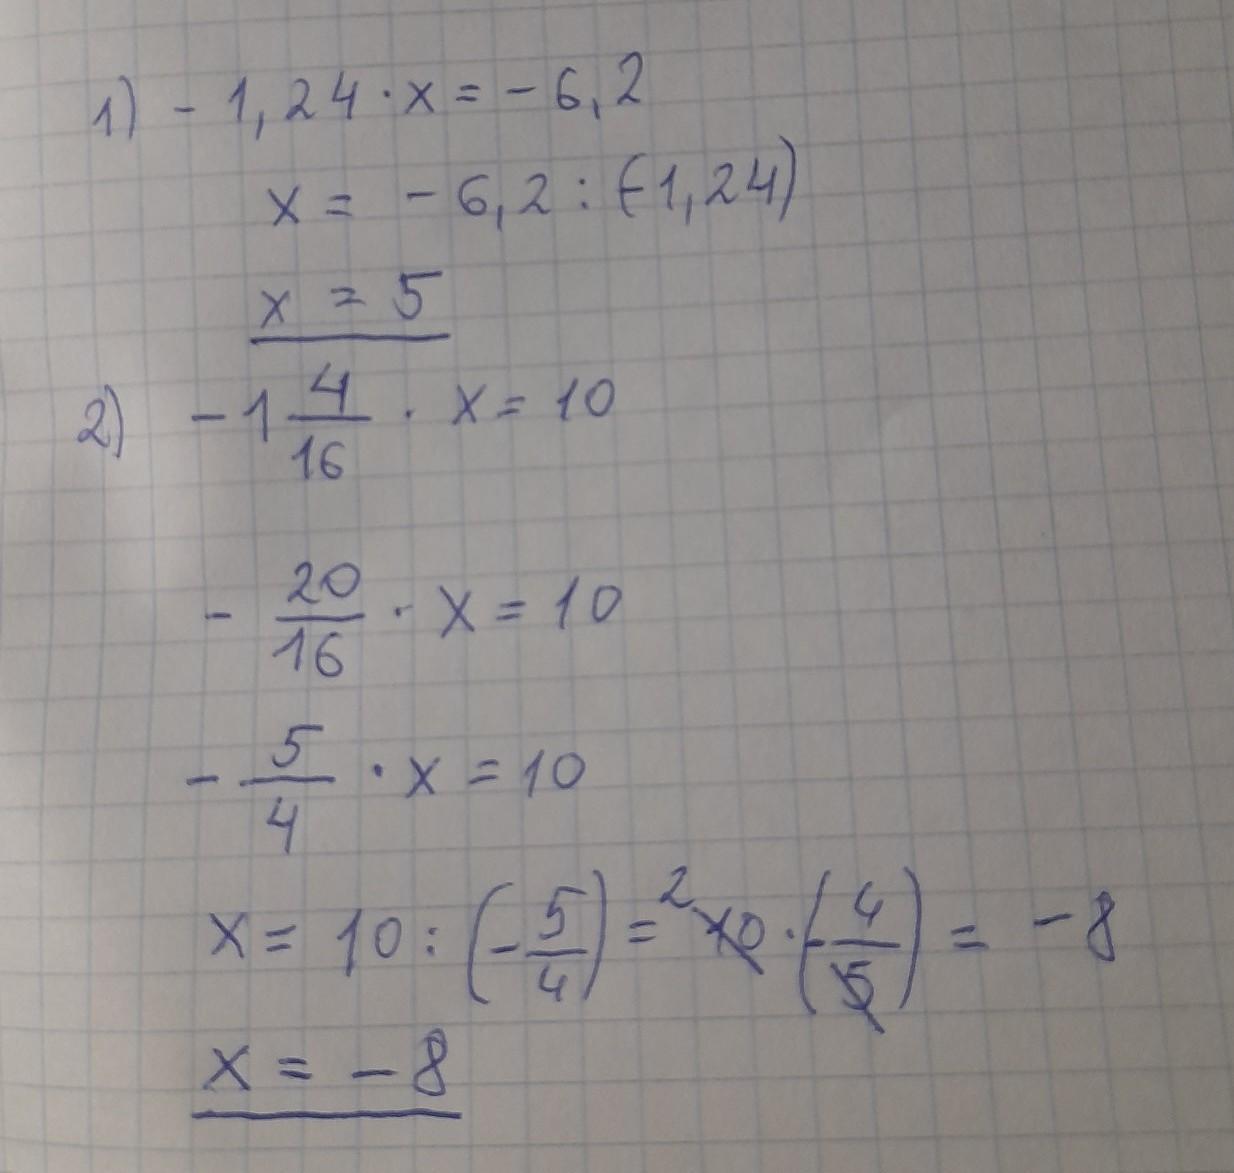 1) - 1,24 · x = - 6,2
x = - 6,2 : (-1,24)
x = 5
2) - 1 4/16 · x = 10
- 20/16 · x = 10
- 5/4 · x = 10
x = 10 : (- 5/4) = 2 10 · (- 4/5) = - 8
x = - 8